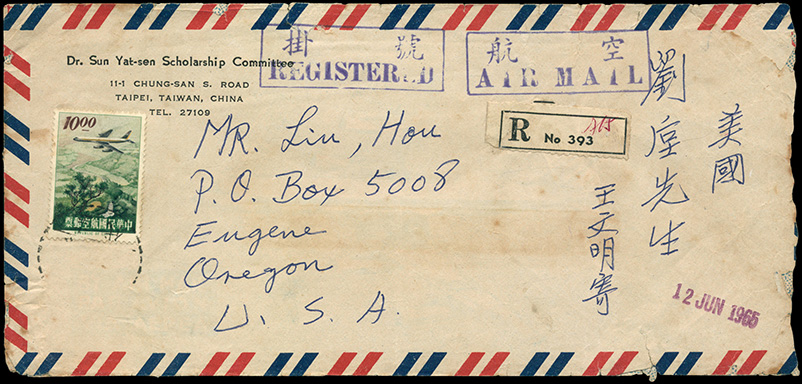 Dr. Sun Yat-sen Scholarship Committee
11-1 CHUNG-SAN S. ROAD
TAIPEI, TAIWAN, CHINA
TEL. 27109
掛號
REGISTERED
航空
AIR MAIL
10.00
票郵空航國民華中
R No 393
MR. Liu, Hou
P.O. Box 5008
Eugene
Oregon
U. S. A.
美國
劉 先生
王文明寄
12 JUN 1965